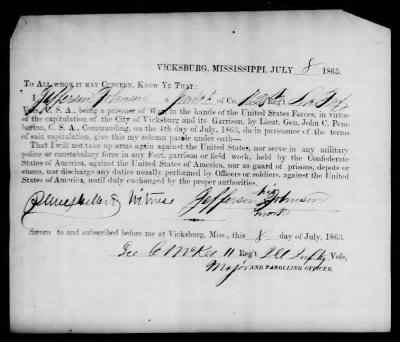 VICKSBURG, MISSISSIPPI, JULY 8 1863.
TO ALL WHOM IT MAY CONCERN, KNOW YE THAT:
I Jefferson Johnson a of Co. Reg't
Vols., C. S. A., being a prisoner of War, in the hands of the United States Forces, in virtue
of the capitulation of the City of Vicksburg and its Garrison, by Lieut. Gen. John C. Pem-
berton, C. S. A., Commanding, on the 4th day of July, 1863, do in pursuance of the terms
of said capitulation, give this my solemn parole under oath—
That I will not take up arms again against the United States, nor serve in any military
police or constabulary force in any Fort, garrison or field work, held by the Confederate
States of America, against the United States of America, nor as guard of prisons, depots or
stores, nor discharge any duties usually performed by Officers or soldiers, against the United
States of America, until duly exchanged by the proper authorities.
Witness Jefferson his Johnson
mark
Sworn to and subscribed before me at Vicksburg, Miss., this 8 day of July, 1863.
Geo C McKee 11 Reg't Ill Infty Vols,
Major AND PAROLLING OFFICER.